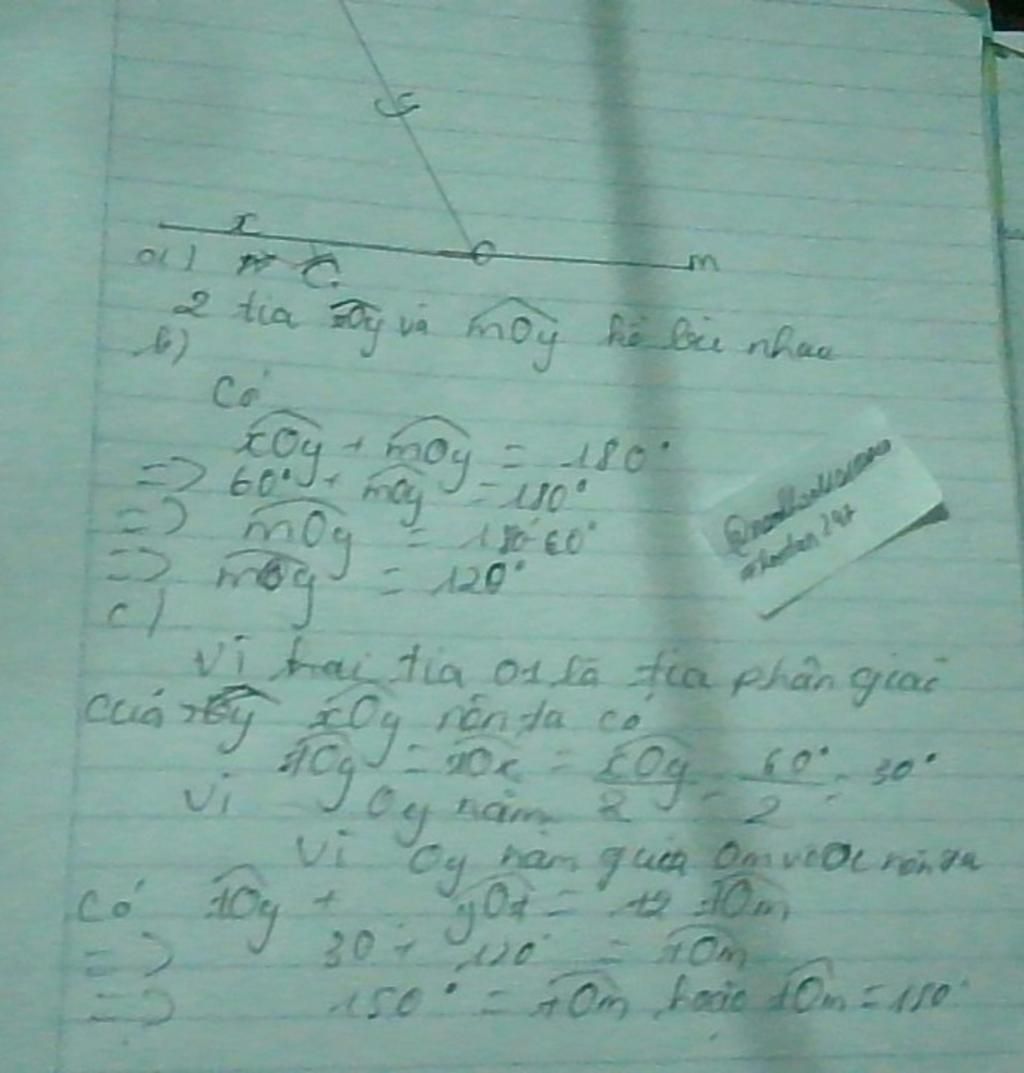 y
x O m
a)
2 tia xOy và mOy kề bù nhau
b)
Có
xOy + mOy = 180°
=> 60° + mOy = 180°
=> mOy = 180-60°
=> mOy = 120°
c)
Vì hai tia Ot là tia phân giác
của xOy nên ta có
tOy = tOx = xOy/2 = 60°/2 = 30°
Vì Oy nằm
Vì Oy nằm giữa Om và nên ta
Có tOy + yOt = tOm
=> 30 + 120 = tOm
=> 150° = tOm hoặc tOm = 150°